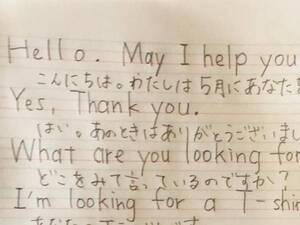 Hello. May I help you
こんにちは。わたしは5月にあなたを
Yes, Thank you.
はい。あのときはありがとうございまし
What are you looking for
どこをみて言っているのですか?
I'm looking for a T-shir